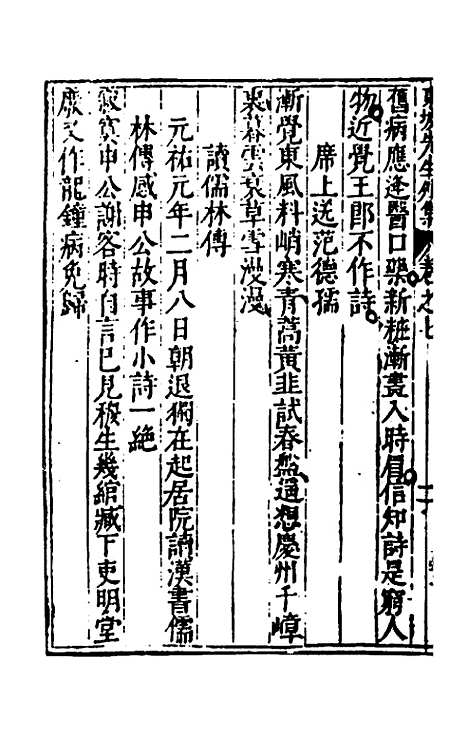 東坡先生外集 卷之七
舊病應逢醫口藥新粧漸畫入時眉信知詩是窮人
物近覺王郎不作詩
席上送范德孺
漸覺東風料峭寒青蒿黃韭試春盤遥想慶州千嶂
裏暮雲衰草雪漫漫
讀儒林傳
元祐元年二月八日朝退獨在起居院讀漢書儒
林傳感申公故事作小詩一絶
寂寞申公謝客時自言已見穆生幾綰藏下吏明堂
廢又作龍鐘病免歸